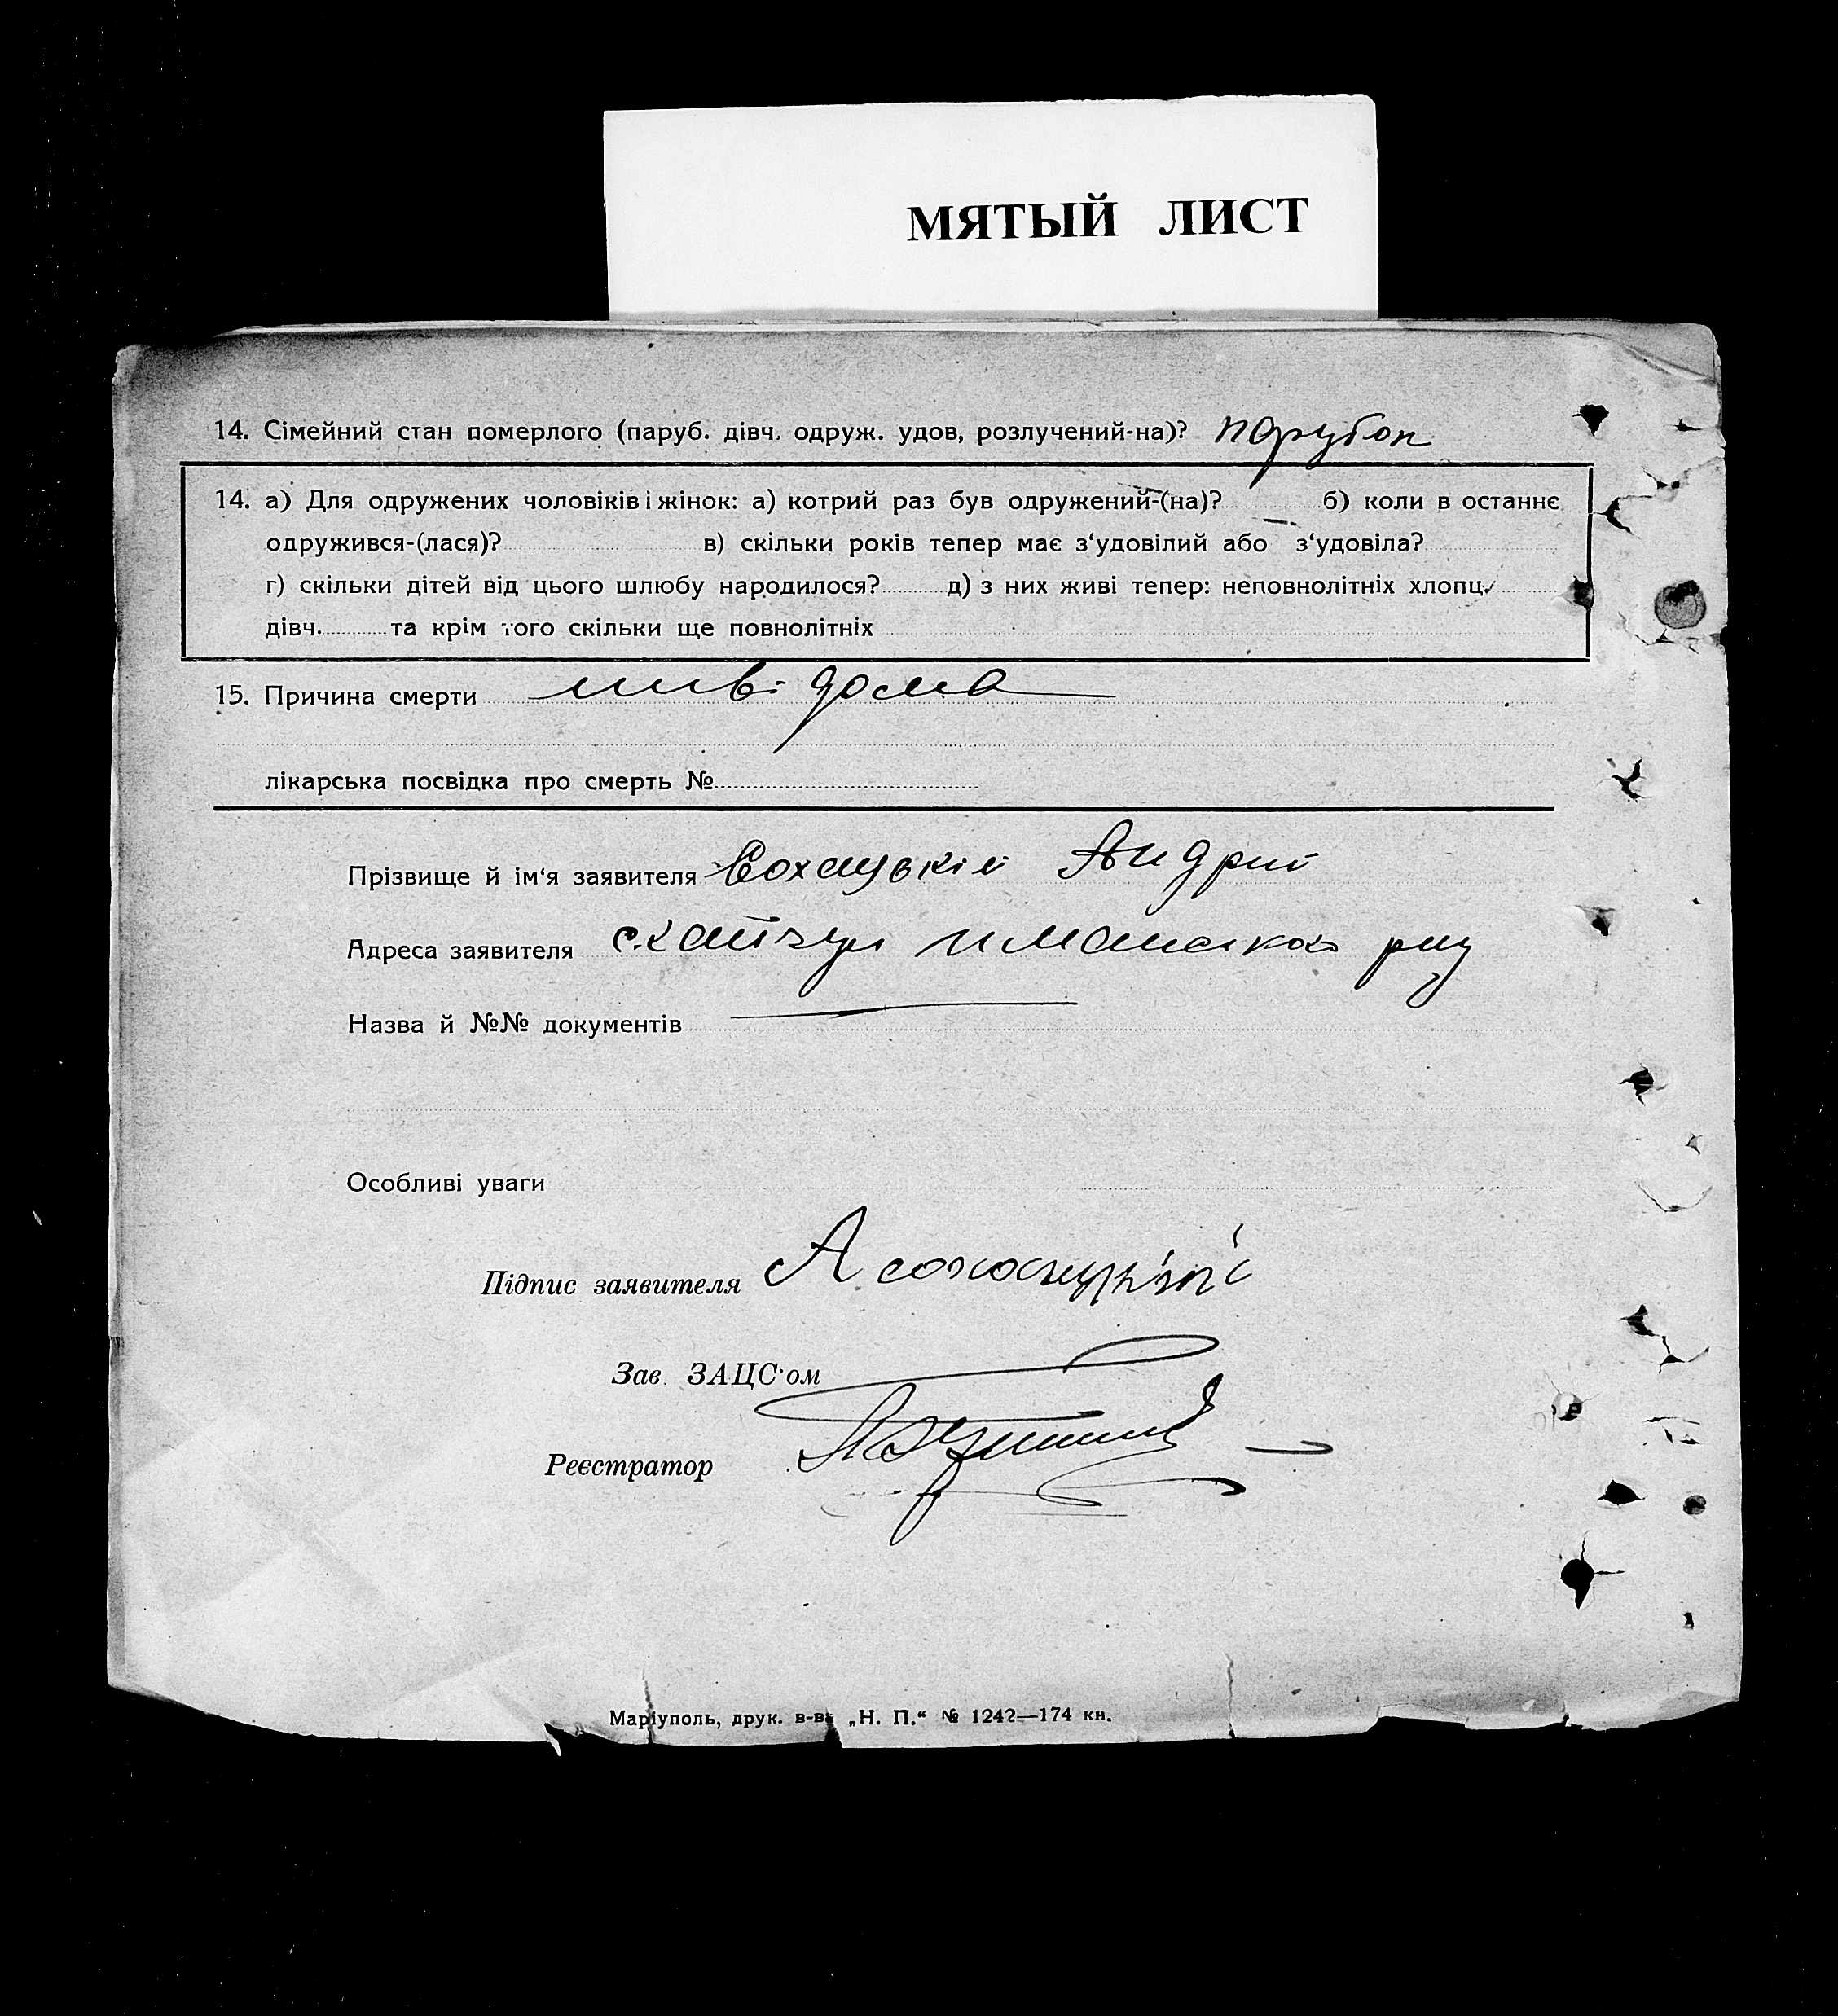 МЯТЫЙ ЛИСТ
14. Сімейний стан померлого (паруб. дівч. одруж. удов, розлучений-на)? парубок
14. а) Для одружених чоловіків і жінок: а) котрий раз був одружений-(на)? б) коли в останнє
одружився-(лася)? в) скільки років тепер має з'удовілий або з'удовіла?
г) скільки дітей від цього шлюбу народилося? д) з них живі тепер: неповнолітніх хлопц.
дівч. та крім того скільки ще повнолітніх
15. Причина смерти
лікарська посвідка про смерть №
Прізвище й ім'я заявителя Сохацькій Андрий
Адреса заявителя
Назва й №№ документів
Особливі уваги
Підпис заявителя А
Зав. ЗАЦС'ом
Реєстратор
Маріуполь, друк. в-ва „Н. П.“ № 1242—174 кн.